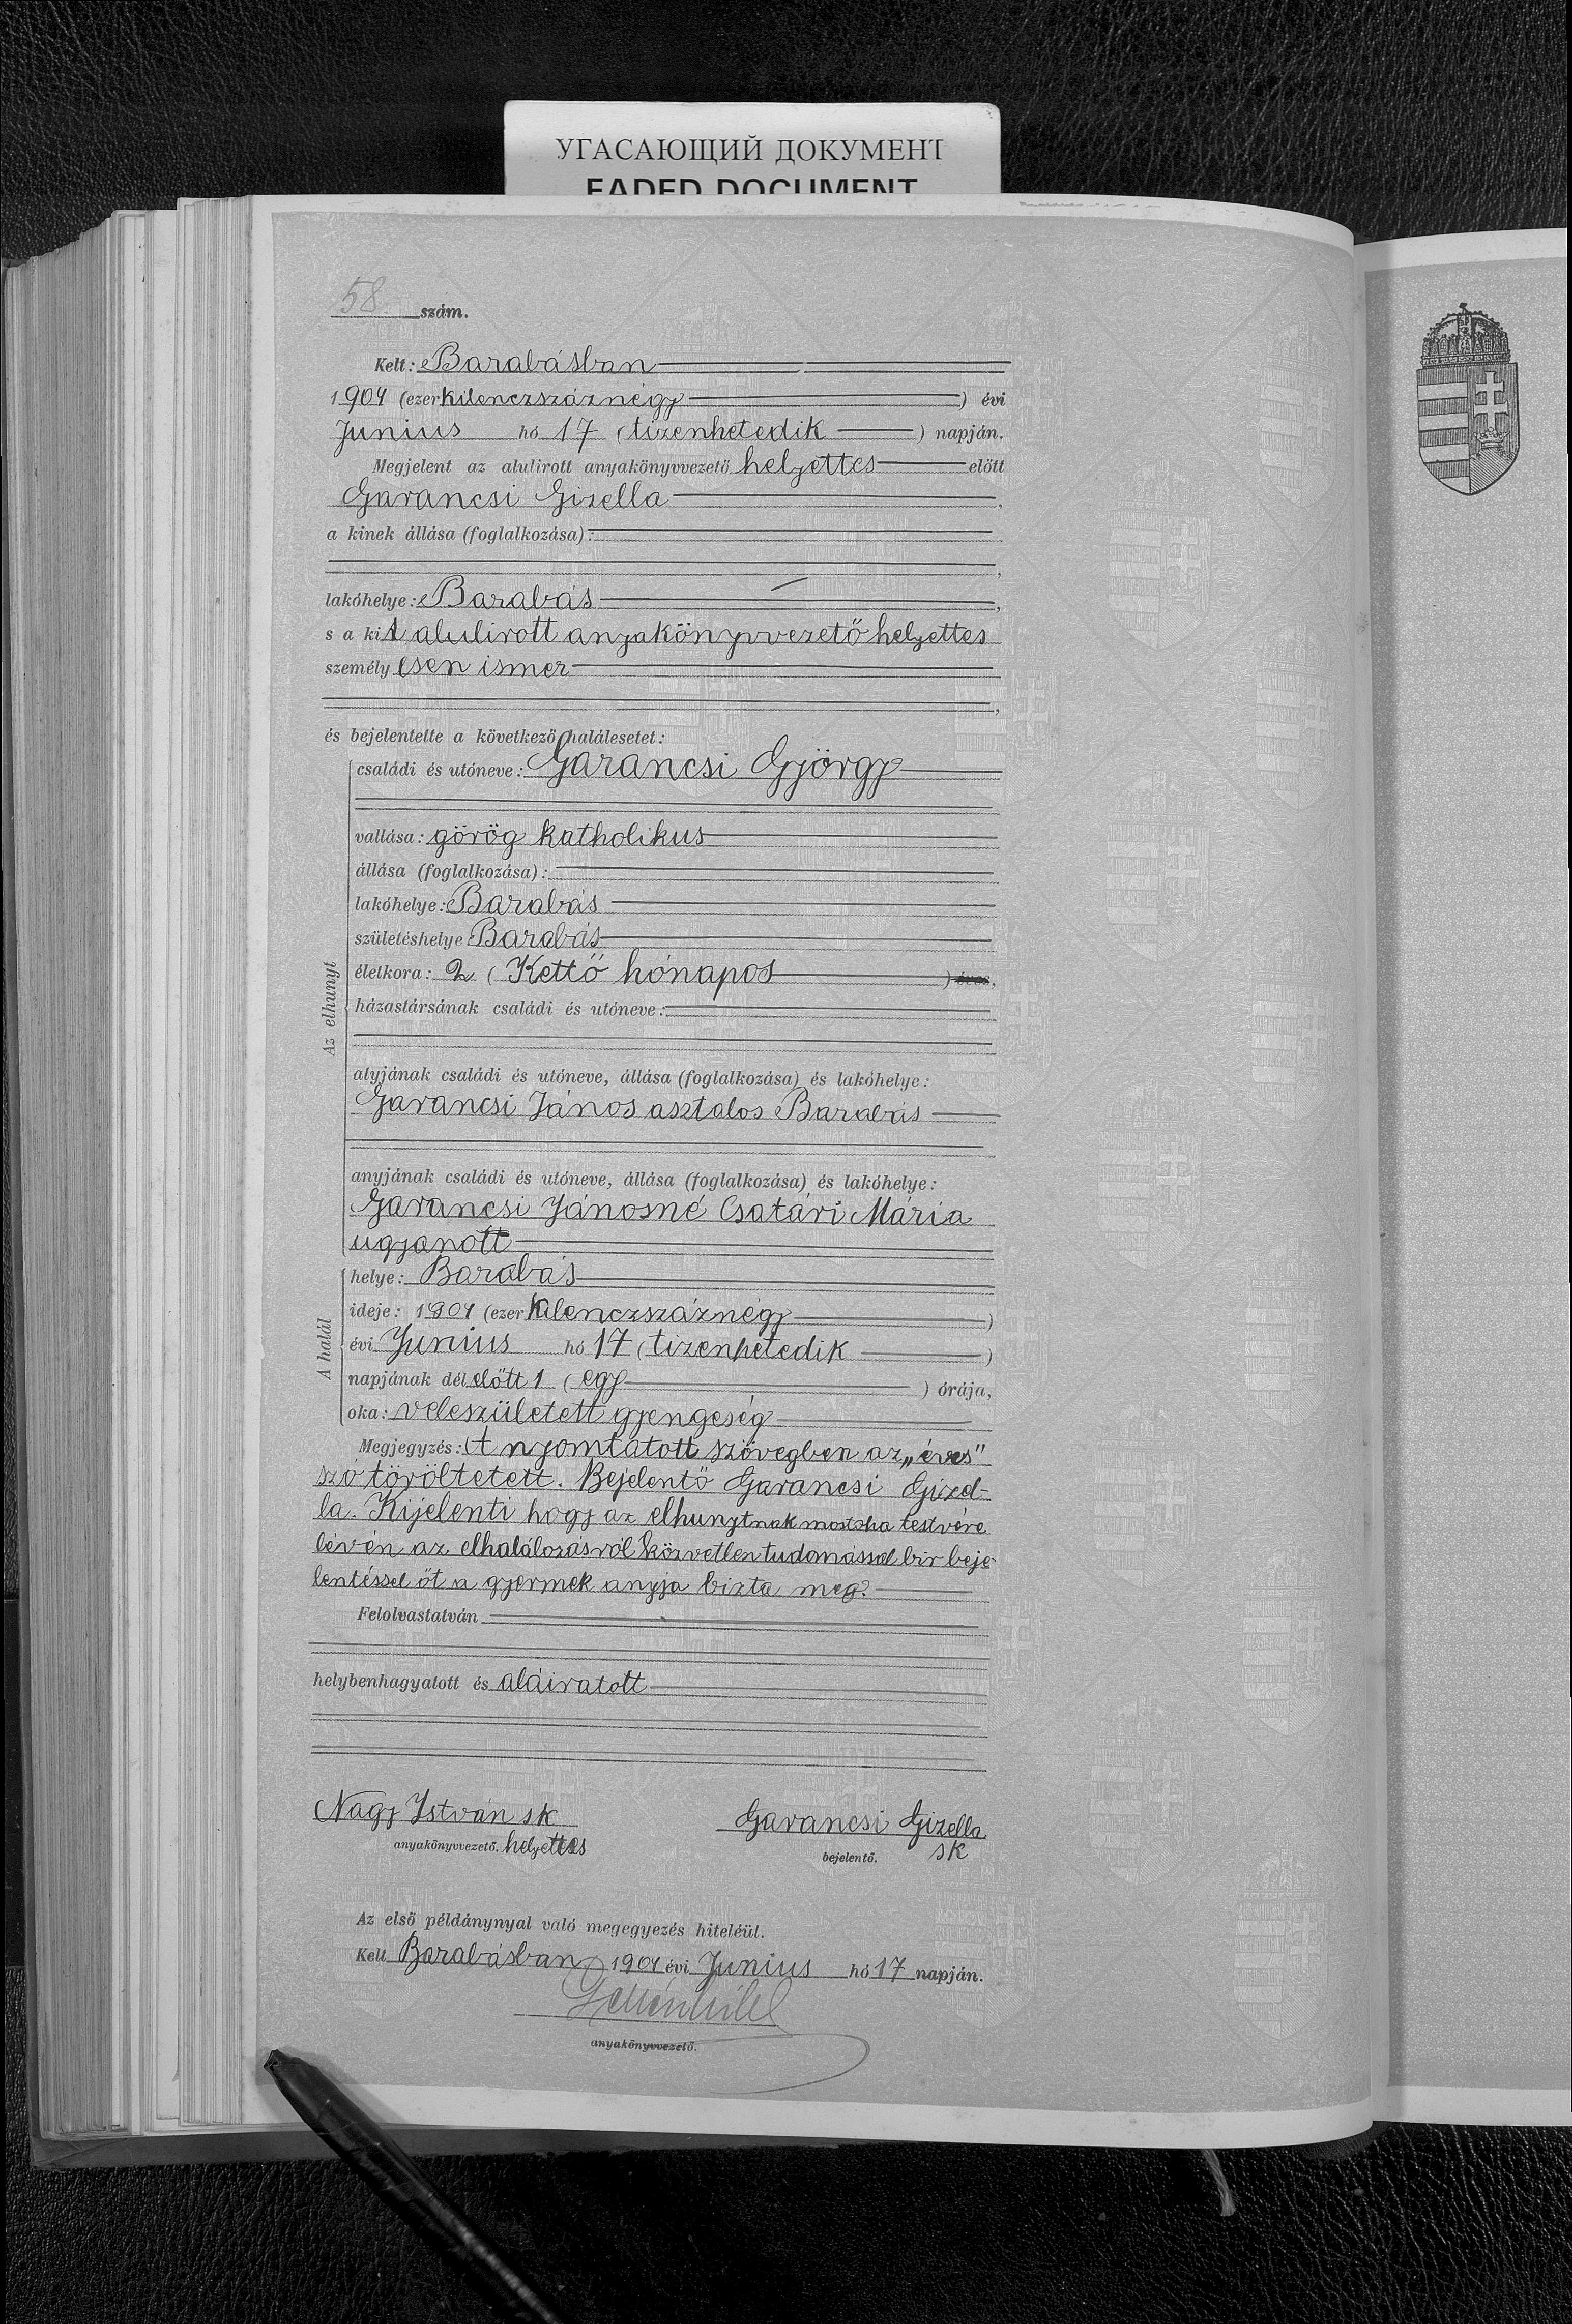 УГАСАЮЩИЙ ДОКУМЕНТ
FADED DOCUMENT
58 szám.
Kelt: Barabásban
1904 (ezer kilenczszáznégy) évi
Junius hó 17 (tizenhetedik) napján.
Megjelent az alulirott anyakönyvvezető helyettes előtt
Garancsi Gizella,
a kinek állása (foglalkozása):
lakóhelye: Barabás,
s a kit alulirott anyakönyvvezető helyettes
személyesen ismer,
és bejelentette a következő halálesetet:
családi és utóneve: Garancsi György
vallása: görög katholikus
állása (foglalkozása):
lakóhelye: Barabás
születéshelye: Barabás
életkora: 2 (Kettő hónapos) éves,
házastársának családi és utóneve:
Az elhunyt
atyjának családi és utóneve, állása (foglalkozása) és lakóhelye:
Garancsi János asztalos Barabás
anyjának családi és utóneve, állása (foglalkozása) és lakóhelye:
Garancsi Jánosné Csatári Mária
ugyanott
helye: Barabás
ideje: 1904 (ezer kilenczszáznégy)
évi Junius hó 17 (tizenhetedik)
A halál
napjának dél előtt 1 (egy) órája,
oka: veleszületett gyengeség
Megjegyzés: A nyomtatott szövegben az „éves"
szó töröltetett. Bejelentő Garancsi Gizel-
la. Kijelenti hogy az elhunytnak mostoha testvére
lévén az elhalálozásról közvetlen tudomással bir beje
lentéssel őt a gyermek anyja bizta meg.
Felolvastatván
helybenhagyatott és aláiratott
Nagy István sk Garancsi Gizella
anyakönyvvezető. helyettes bejelentő. sk
Az első példánynyal való megegyezés hiteléül.
Kelt Barabásban 1904 évi Junius hó 17 napján.
anyakönyvvezető.